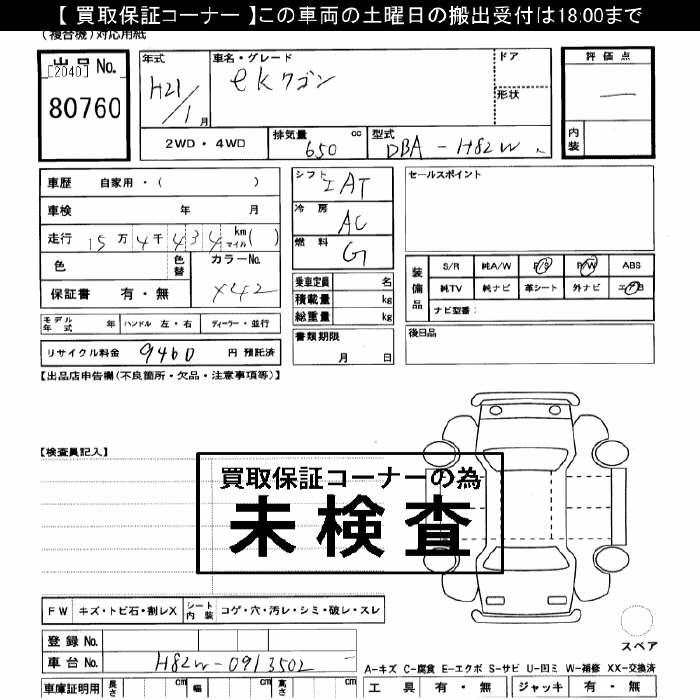 【 買取保証コーナー 】この車両の土曜日の搬出受付は18:00まで
(複合機)対応用紙
出品 No.
[2040]
80760
年式
H21/1 月
車名・グレード
ekワゴン
ドア
形状
評価点
—
内装
2WD・4WD
排気量
650 cc
型式
DBA-H82W
車歴 自家用・( )
車検 年 月
走行 15万4千434 km マイル( )
色
色替
カラーNo.
X42
保証書 有・無
シフト
IAT
冷房
AC
燃料
G
乗車定員 名
積載量 kg
総重量 kg
書類期限
月 日
セールスポイント
装備品
S/R 純A/W P/S P/W ABS
純TV 純ナビ 革シート 外ナビ エアB
ナビ型番:
後日品
モデル年式 年 ハンドル 左・右 ディーラー・並行
リサイクル料金 9460 円 預託済
【出品店申告欄(不良箇所・欠品・注意事項等)】
【検査員記入】
買取保証コーナーの為
未検査
FW キズ・トビ石・割レX シート内装 コゲ・穴・汚レ・シミ・破レ・スレ
登録 No.
車台 No. H82W-0913502
スペア
A-キズ C-腐食 E-エクボ S-サビ U-凹ミ W-補修 XX-交換済
車庫証明用 長さ cm 幅 cm 高さ cm
工具 有・無 ジャッキ 有・無